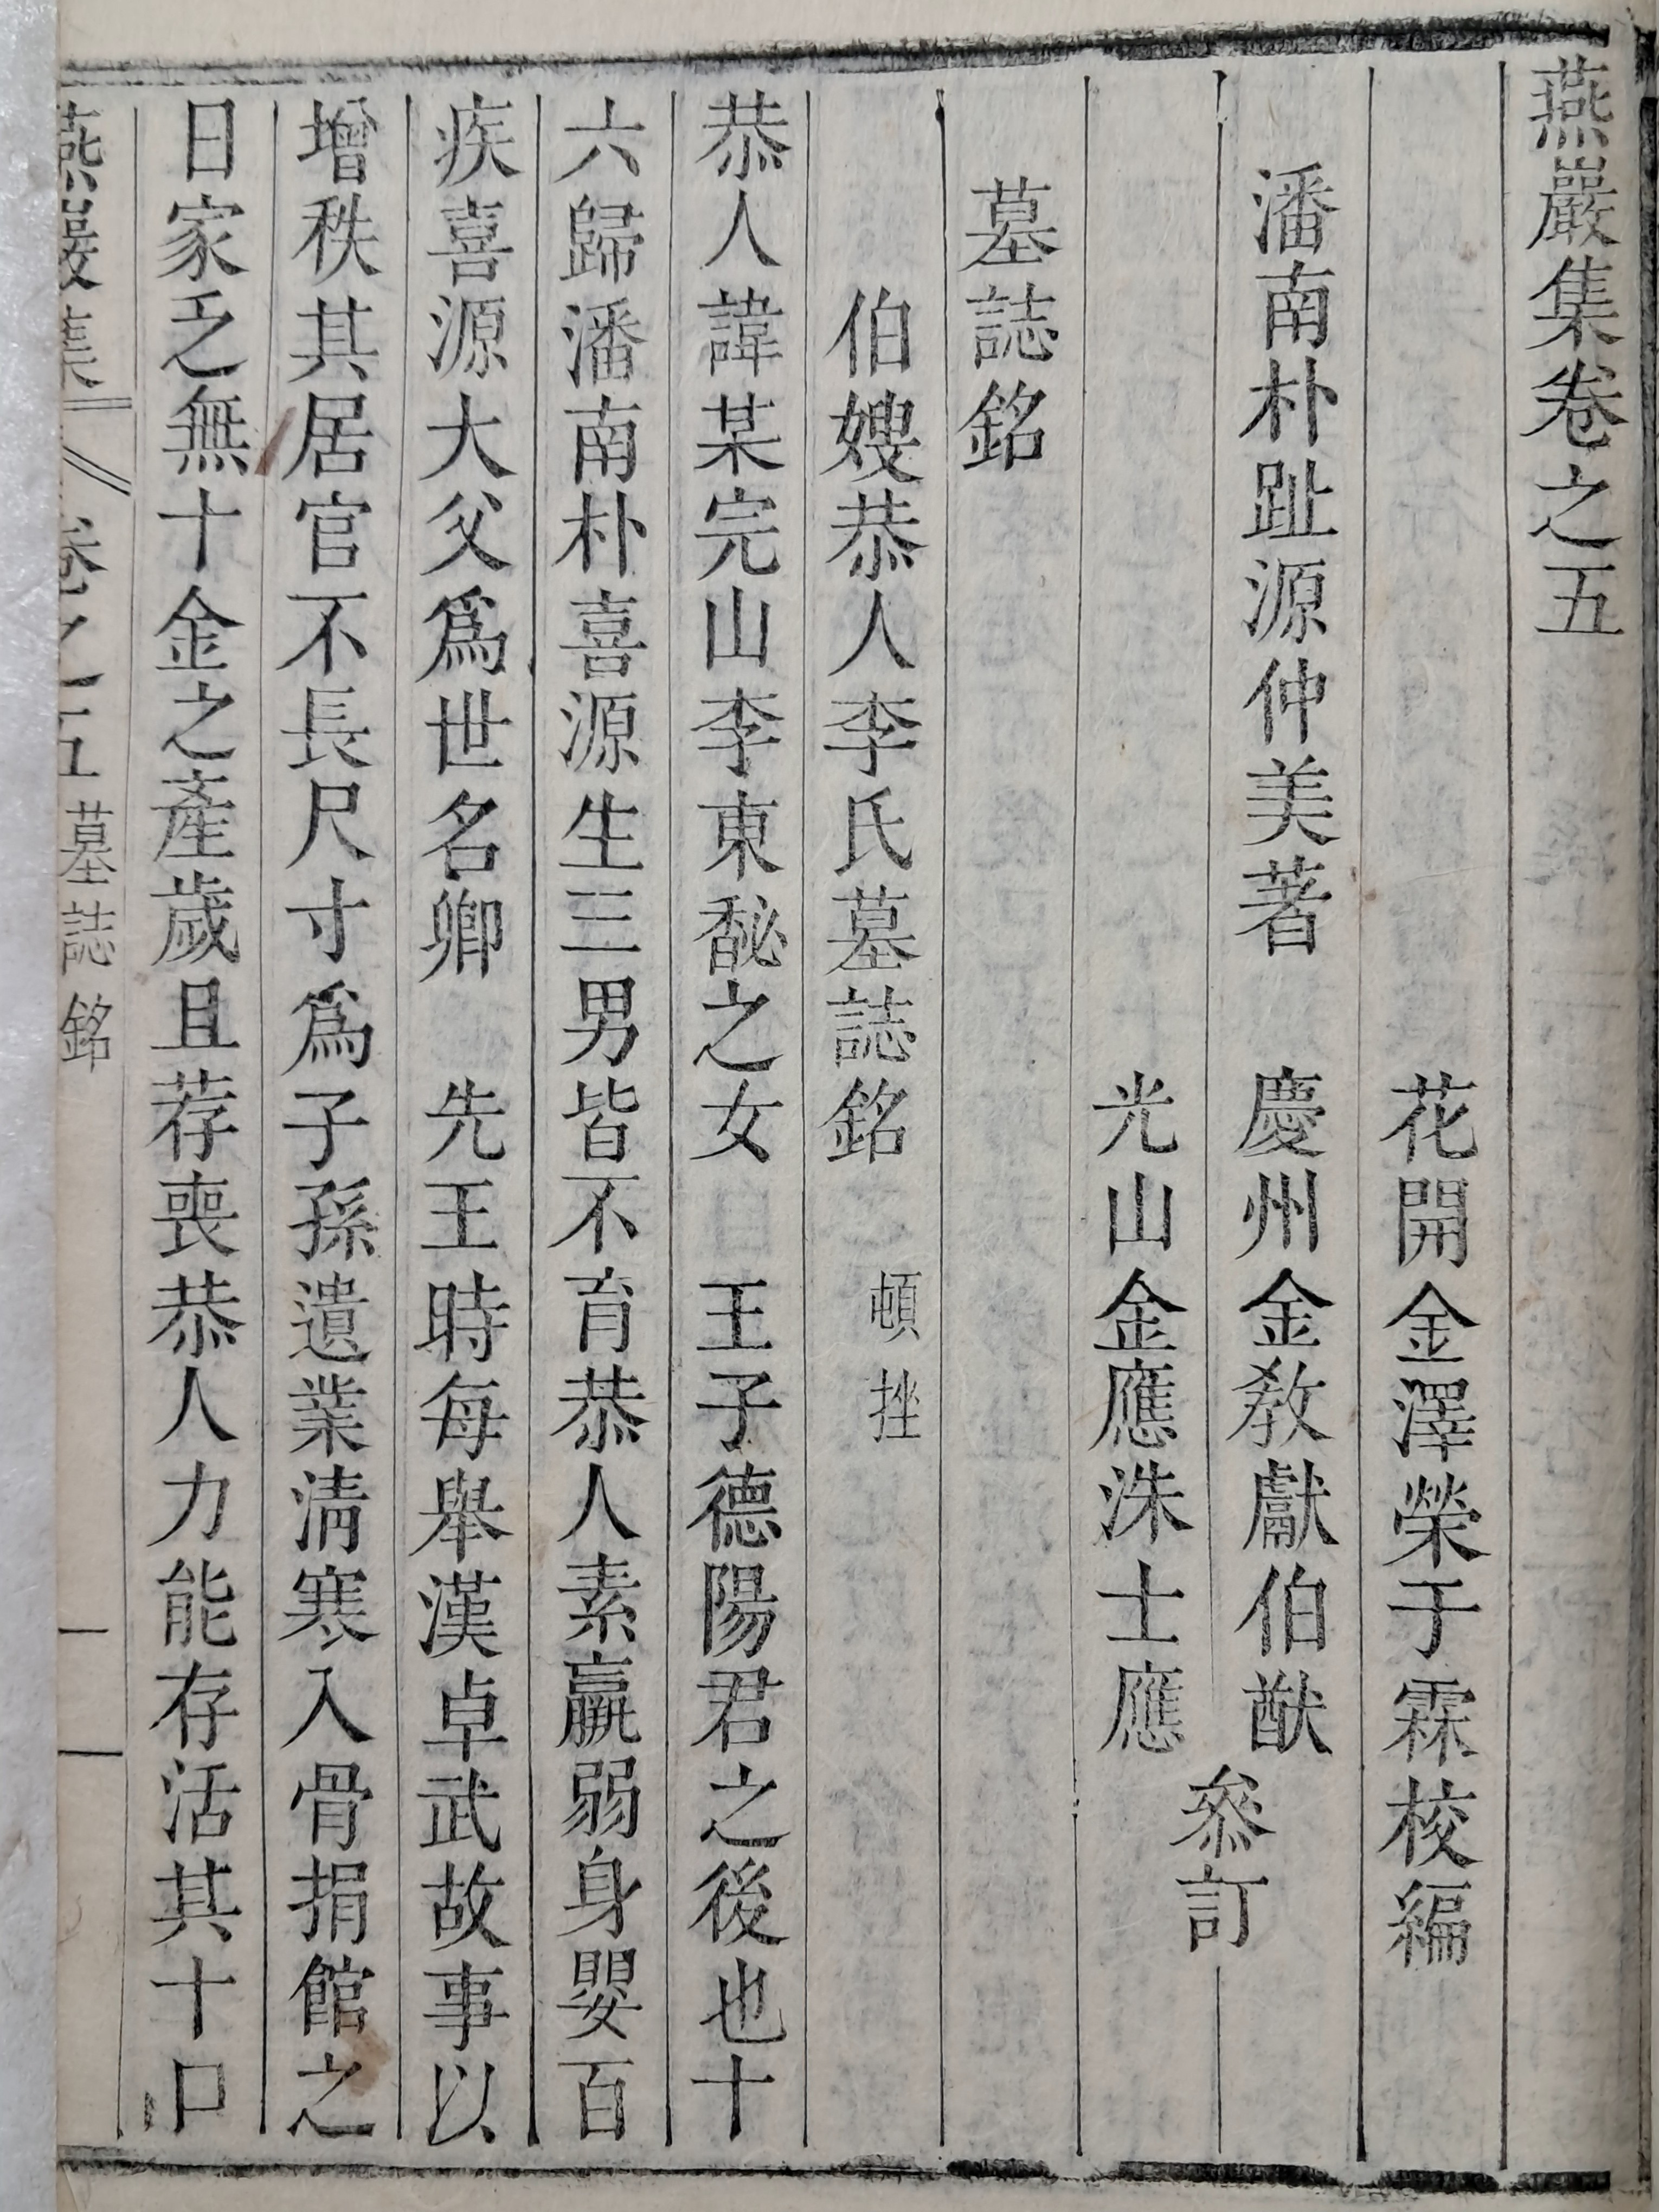 燕巖集卷之五
花開金澤榮于霖校編
潘南朴趾源仲美著 慶州金敎獻伯猷
光山金應洙士應
參訂
墓誌銘
伯嫂恭人李氏墓誌銘 頓挫
恭人諱某完山李東馝之女 王子德陽君之後也十
六歸潘南朴喜源生三男皆不育恭人素羸弱身嬰百
疾喜源大父爲世名卿 先王時每舉漢卓武故事以
增秩其居官不長尺寸爲子孫遺業淸寒入骨捐館之
日家乏無十金之產歲且荐喪恭人力能存活其十口
燕巖集 卷之五 墓誌銘 一